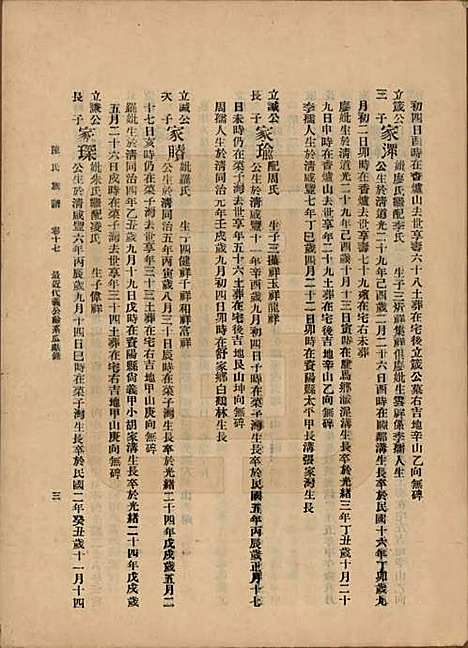 初四日酉時在香爐山去世享壽六十八土葬在宅後立箴公墓右吉地辛山乙向無碑
立箴公 妣廖氏繼配李氏 生子三 祥集祥俱廖妣生雲祥係李孺人生
三子 家澤 公生於清道光二十九年己酉歲二月二十六日酉時在 溝生長卒於民國十六年丁卯歲九
月初二日卯時在香爐山去世享壽七十九殯在宅右未葬
廖妣生於清道光二十九年己酉歲十月十三日寅時在 鄉 泥溝生長卒於光緒三年丁丑歲十月二十
九日申時在香爐山去世享年二十九土葬在宅後吉地辛山乙向無碑
李孺人生於清咸豐七年丁巳歲四月二十二日卯時在資陽縣太平甲長溝張家灣生長
立誠公 配周氏 生子三 祥玉祥龍祥
長子 家瑜 公生於清咸豐十一年辛酉歲九月初四日子時在菜子灣生長卒於民國五年丙辰歲正月十七
日未時仍在菜子灣去世享年五十六土葬在宅後吉地艮山坤向無碑
周孺人生於清同治元年壬戌歲九月初四日卯時在舒家鄉白鶴林生長
立誠公 妣羅氏 生子四健祥千祥和祥富祥
次子 家 公生於清同治五年丙寅歲八月二十日辰時在菜子灣生長卒於光緒二十四年戊戌歲五月二
十七日亥時仍在菜子灣去世享年三十三土葬在宅右吉地甲山庚向無碑
羅妣生於清同治四年乙丑歲九月十九日戌時在資陽縣尙義甲小胡家溝生長卒於光緒二十四年戊戌歲
五月二十六日亥時在菜子灣去世享年三十四土葬在宅右吉地甲山庚向無碑
立議公 妣朱氏繼配凌氏 生子偉祥
長子 家琛 公生於清咸豐六年丙辰歲九月十四日巳時在菜子灣生長卒於民國二年癸丑歲十一月十四
陳氏族譜 卷十七 最近代義公 系瓜瓞錄 三